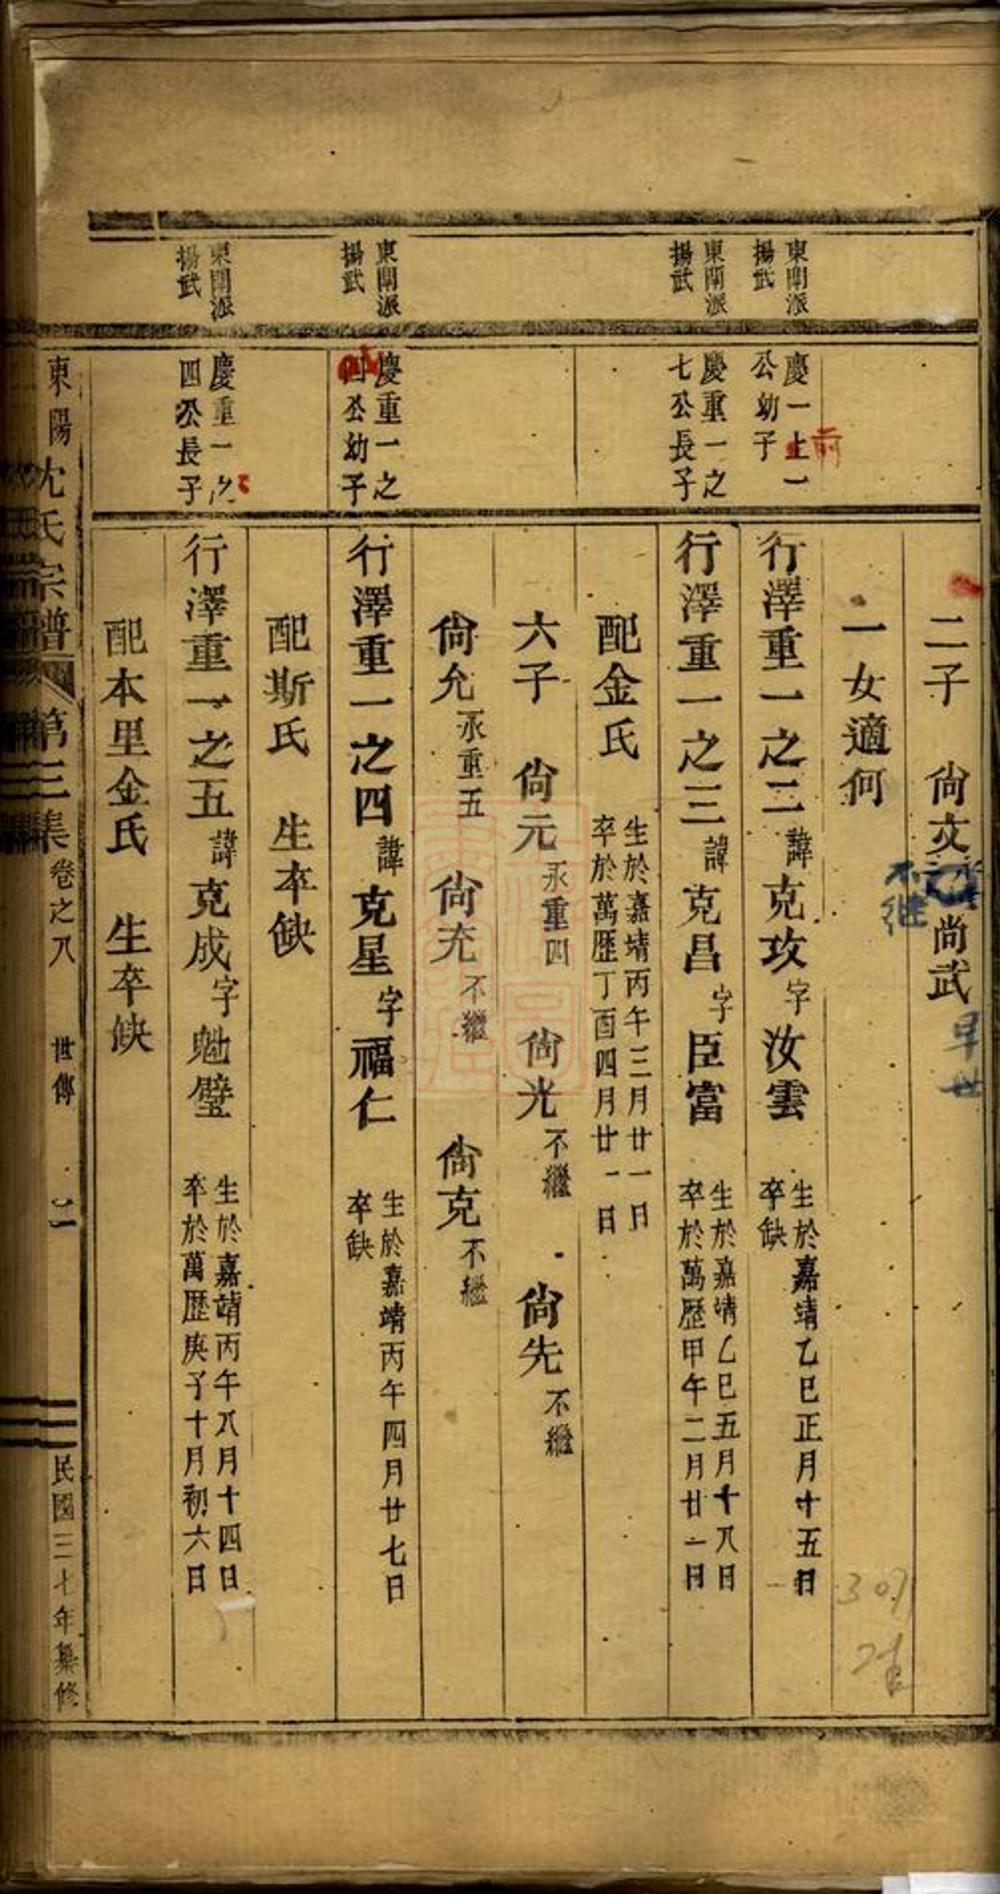 二子　尙文　尚武　早世
不继
一女適何
東門派
揚武
慶一上一
公幼子
前
行澤重一之二諱克攻字汝雲
生於嘉靖乙巳正月十五日
卒缺
東門派
揚武
慶重一之
七公長子
行澤重一之三諱克昌字臣富
生於嘉靖乙巳五月十八日
卒於萬歷甲午二月廿一日
配金氏
生於嘉靖丙午三月廿一日
卒於萬歷丁酉四月廿一日
六子　尙元永重四　尙光不繼　尙先不繼
尙允永重五　尙充不繼　尙克不繼
東門派
揚武
慶重一之
四公幼子
行澤重一之四諱克星字福仁
生於嘉靖丙午四月廿七日
卒缺
配斯氏　生卒缺
東門派
揚武
慶重一之
四公長子
行澤重一之五諱克成字魁璧
生於嘉靖丙午八月十四日
卒於萬歷庚子十月初六日
配本里金氏　生卒缺
東陽沈氏宗譜　第三集　卷之八　世傳　民國三十年纂修